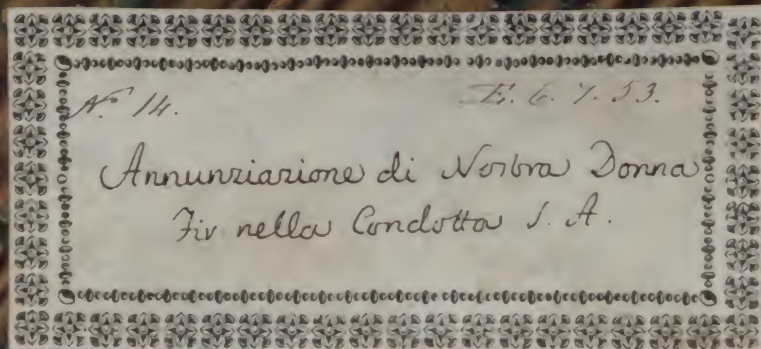 N.° 14. E. 6. 7. 53.
Annunziazione di Nostra Donna
Fir nella Condotta S. A.